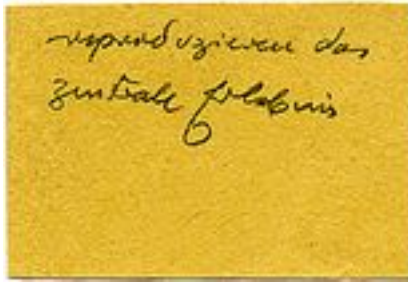 reproduzieren das
zentrale Erlebnis